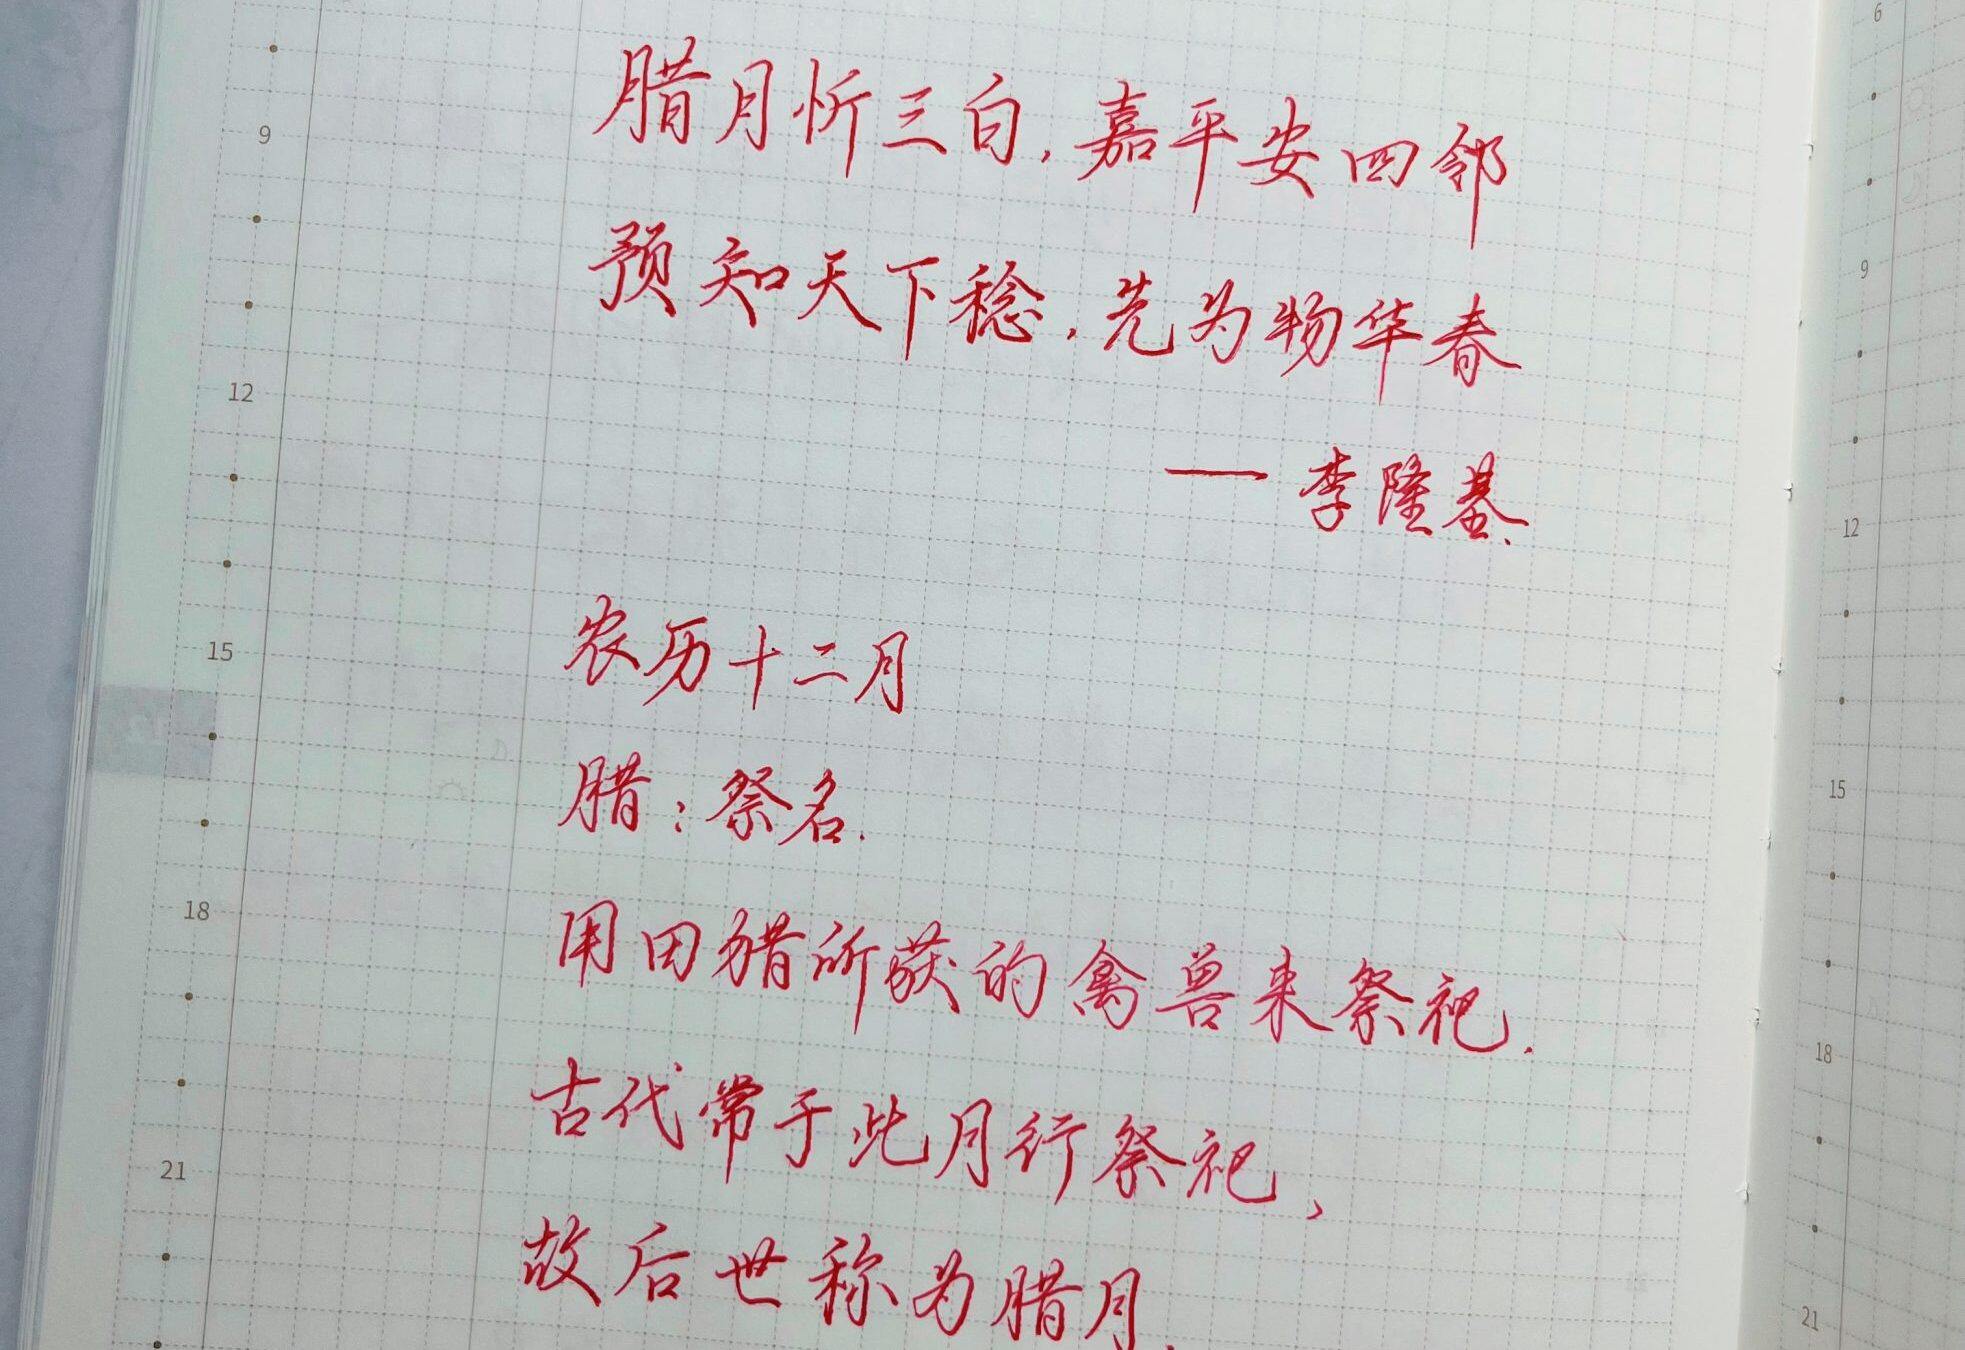 腊月忻三白,嘉平安四邻
预知天下稔,先为物华春
——李隆基.
农历十二月
腊:祭名.
用田猎所获的禽兽来祭祀.
古代常于此月行祭祀、
故后世称为腊月.
9
12
15
18
21
6
9
12
15
18
21